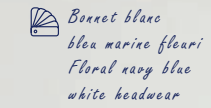 Bonnet blanc
bleu marine fleuri
Floral navy blue
white headwear